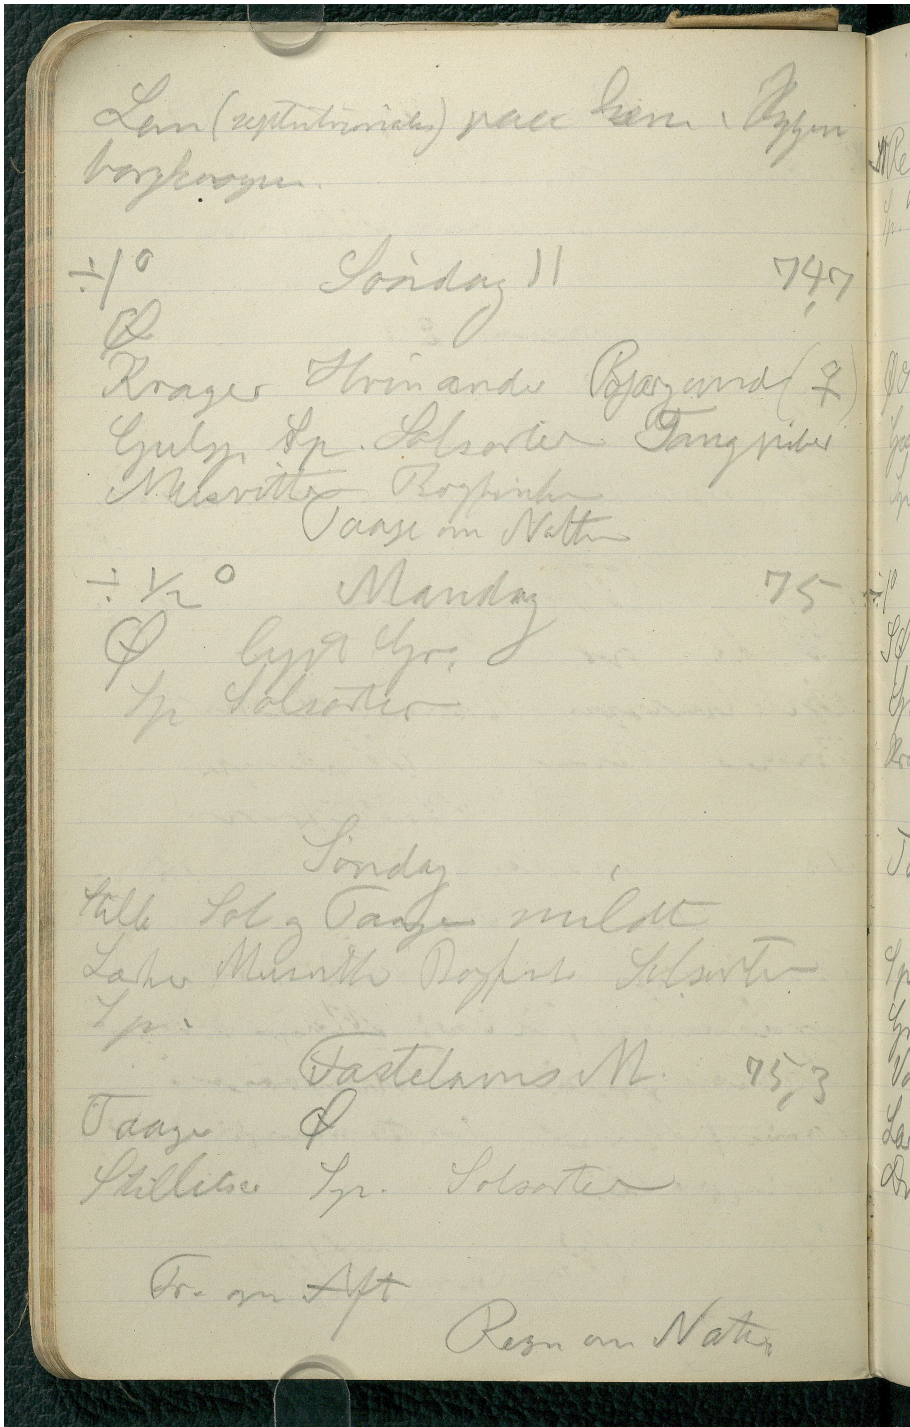 Lom (septentrionalis) paa Isen i Dyggen
borgkrogen.
÷1° Söndag 11 74,7
Ø
Krager Hvinande Bjærgand (♀)
Gulsp. Sp. Solsorter Tangpiber
Musvitter Bogfinke
Taage om Natten
÷ 1/2° Mandag 75
Ø Gr.
Sp Solsorter
Söndag
Stille Sol og Taage mildt
Lærker Musvitter Bogfink Solsorter
Sp.
Fastelavns M. 75,3
Taage Ø
Stillidser Sp. Solsorter
Fr. om Aft
Regn om Natten